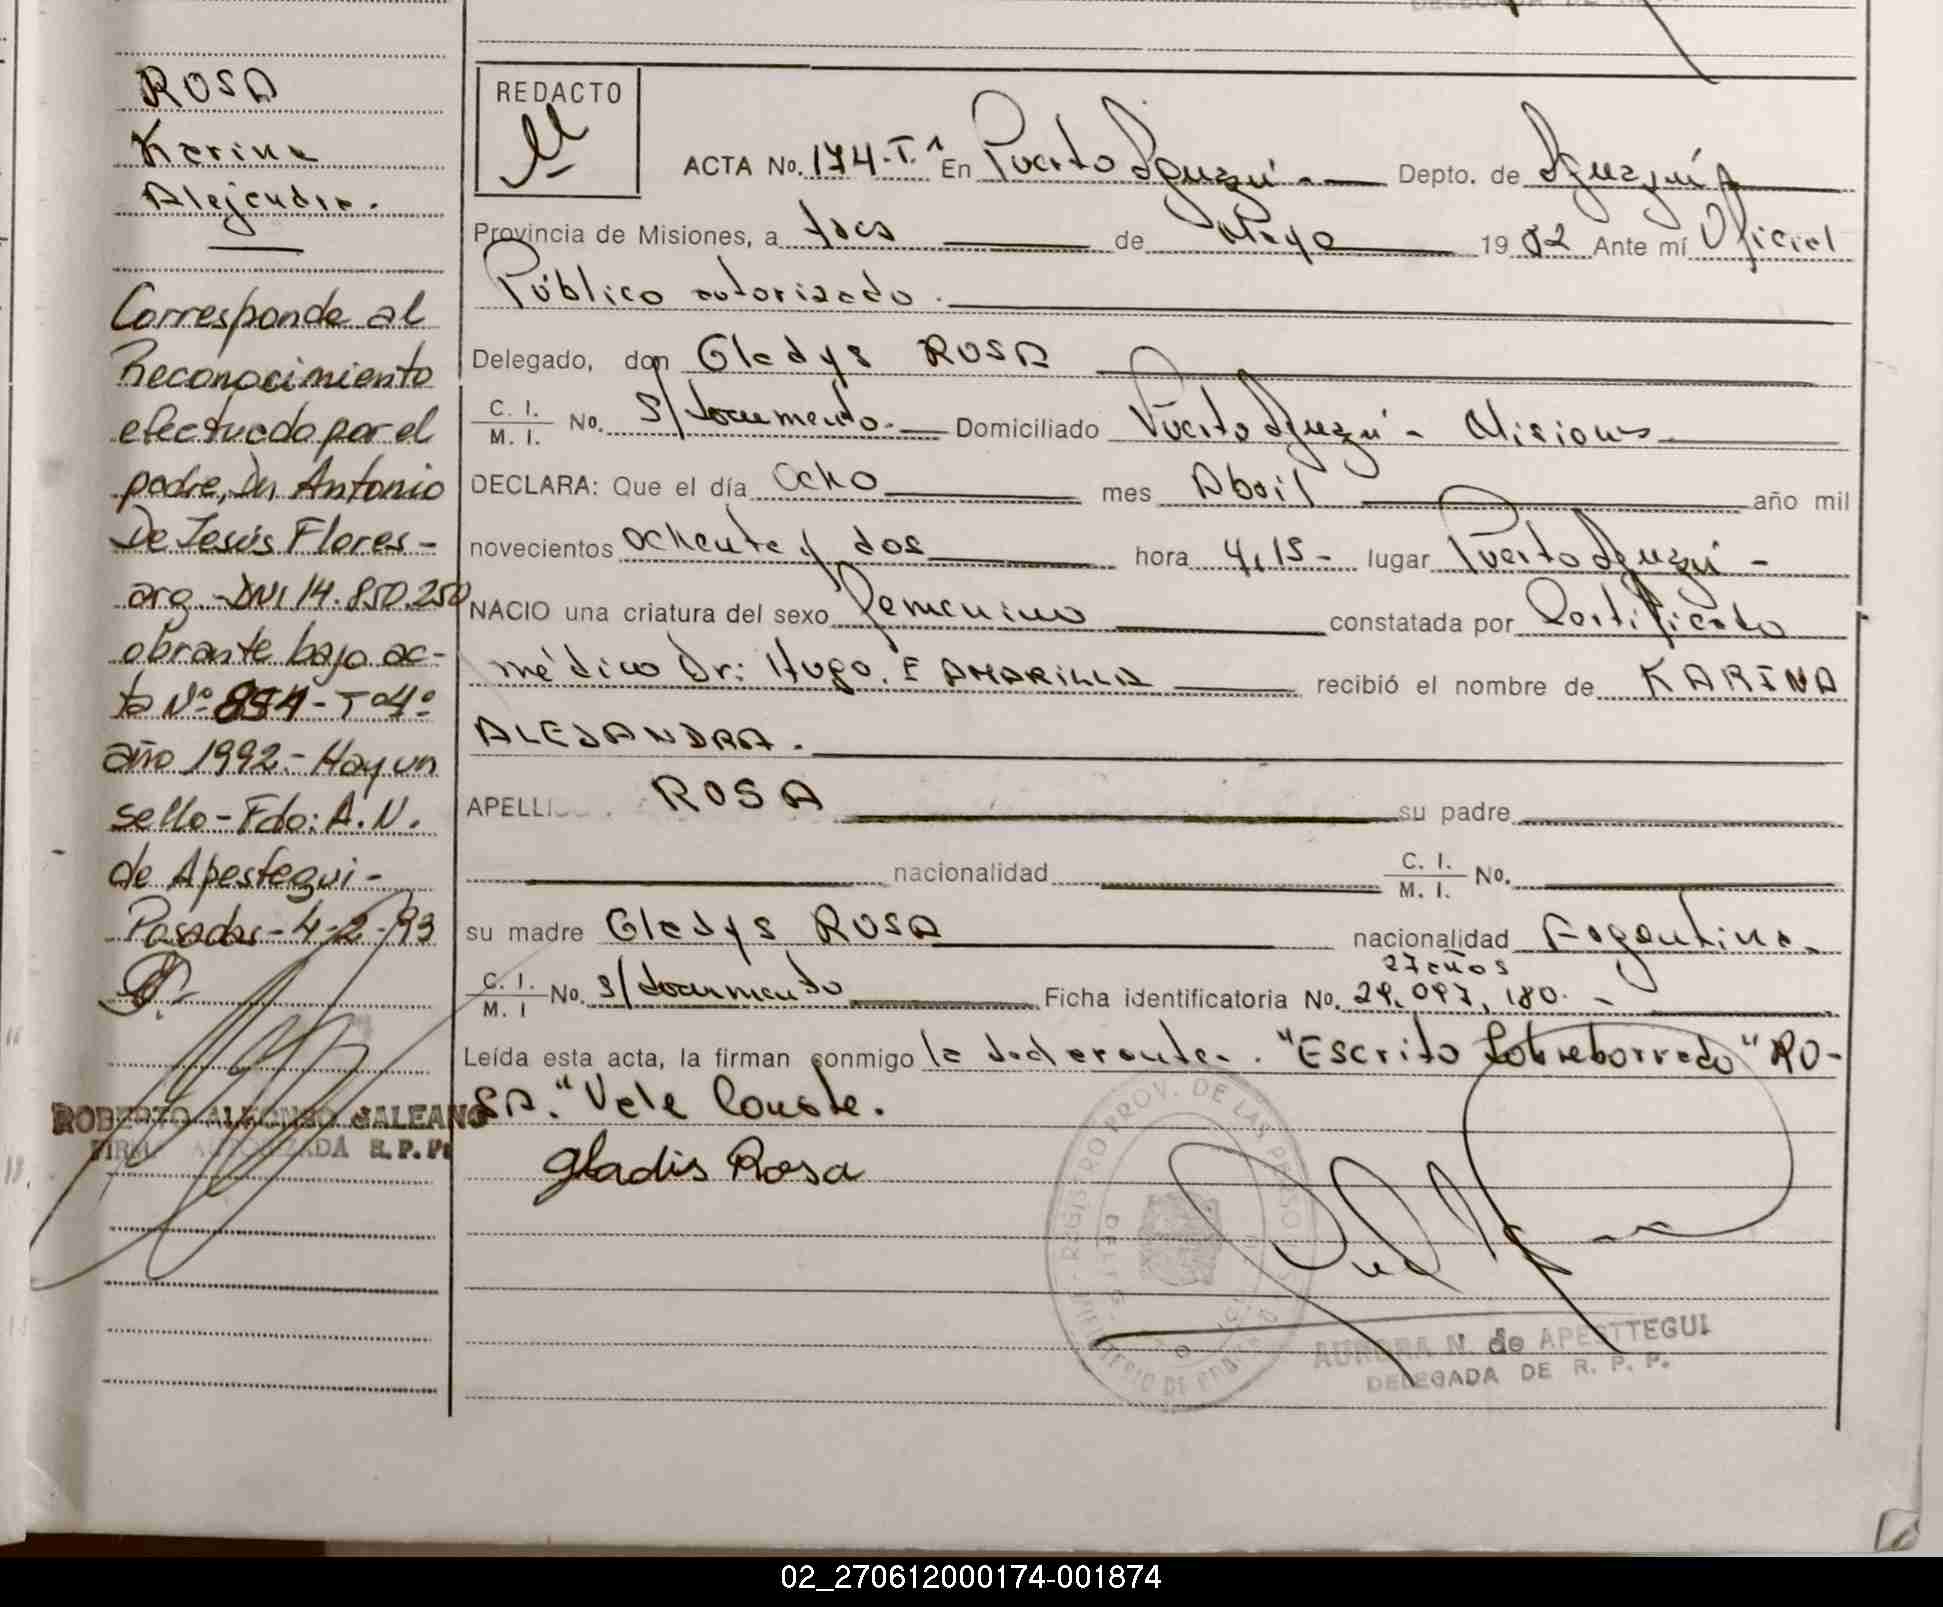 ROSA
Karina
Alejandra.
Corresponde al
Reconocimiento
efectuado por el
padre, Dn Antonio
De Jesús Flores -
arg - DNI 14.850.250
obrante bajo ac-
ta Nº 894 - Tº 4º
año 1992 - Hay un
sello - Fdo: A. N.
de Apestegui -
Posadas - 4-2-93
ROBERTO ALFONSO GALEANO
FIRMA AUTORIZADA R.P.P.
REDACTO
ACTA No. 174-T.1 En Puerto Iguazú - Depto. de Iguazú
Provincia de Misiones, a tres de Mayo 1982 Ante mí Oficial
Público autorizado.
Delegado, don Gladys ROSA
C. I. M. I. No. S/documento.- Domiciliado Puerto Iguazú - Misiones
DECLARA: Que el día Ocho mes Abril año mil
novecientos ochenta y dos hora 4,15 - lugar Puerto Iguazú -
NACIO una criatura del sexo femenino constatada por Certificado
médico Dr: Hugo. E AMARILLA recibió el nombre de KARINA
ALEJANDRA.
APELLI ROSA su padre
nacionalidad C. I. M. I. No.
su madre Gladys ROSA nacionalidad Argentina.
27 años
C. I. M. I No. S/documento Ficha identificatoria No. 24.097.180. -
Leída esta acta, la firman conmigo la declarante. "Escrito Sobreborrado" RO-
SA." Vale Conste.
Gladis Rosa
REGISTRO PROV. DE LAS PERSO
AURORA N. de APESTTEGUI
DELEGADA DE R. P. P.
02_270612000174-001874